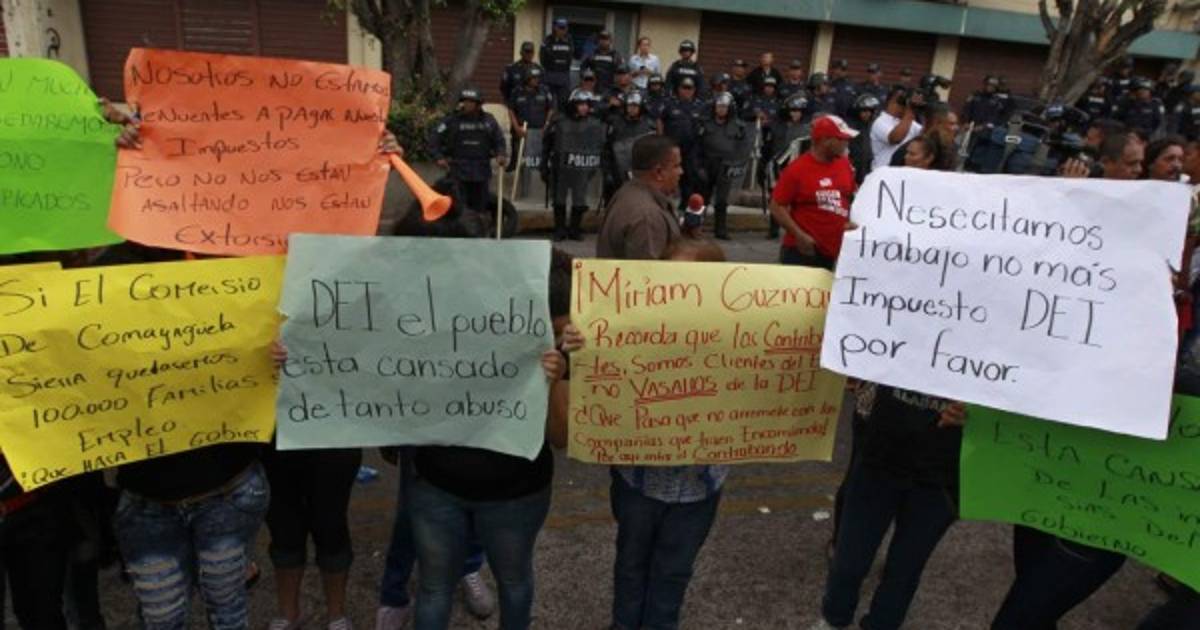 SEDAREMOS
NOSOTROS NO ESTAMOS
RENUENTES A PAGAR
Impuestos
PERO NO NOS ESTAN
ASALTANDO NOS ESTAN
Si El Comersio
De Comayaguela
Sierra quedasemos
100.000 Familias
Empleo
¡Que HACA EL Gobier
DEI el pueblo
esta cansado
de tanto abuso
¡Miriam Guzma
Recorda que los Contrib
tes. Somos Clientes del E
no VASALLOS de la DEI
¿Que Pasa que no arremete con las
Compañias que traen Encomienda!
Por aqui entra el Contrabando
Nesecitamos
trabajo no más
Impuesto DEI
por favor.
ESTA CANS
DE LAS
SIAS DEL
Gobierno
POLICIA